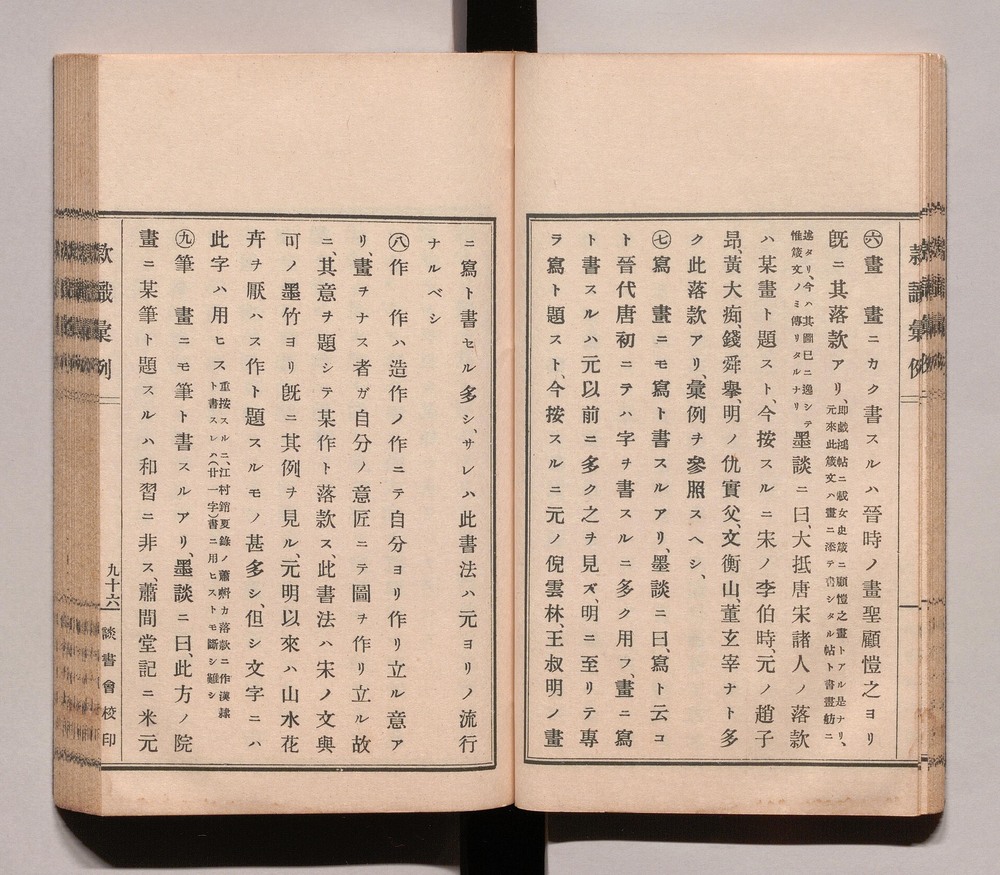 ㊅畫　畫ニカク書スルハ晉時ノ畫聖顧愷之ヨリ
既ニ其落款アリ、卽戲鴻帖ニ載女史箴ニ顧愷之畫トアル是ナリ、
元來此箴文ハ畫ニ添テ書シタル帖ト書畫舫ニ
述タリ、今ハ其圖已ニ逸シテ
惟箴文ノミ傳リタルナリ墨談ニ曰、大抵唐宋諸人ノ落款
ハ某畫ト題スト、今按スルニ宋ノ李伯時、元ノ趙子
昂、黃大痴、錢舜擧、明ノ仇實父、文衡山、董玄宰ナト多
ク此落款アリ、彙例ヲ參照スヘシ、
㊆寫　畫ニモ寫ト書スルアリ、墨談ニ曰、寫ト云コ
ト晉代唐初ニテハ字ヲ書スルニ多ク用フ、畫ニ寫
ト書スルハ元以前ニ多ク之ヲ見ズ、明ニ至リテ專
ラ寫ト題スト、今按スルニ元ノ倪雲林、王叔明ノ畫
款識彙例
ニ寫ト書セル多シ、サレハ此書法ハ元ヨリノ流行
ナルベシ
㊇作　作ハ造作ノ作ニテ自分ヨリ作リ立ル意ア
リ、畫ヲナス者ガ自分ノ意匠ニテ圖ヲ作リ立ル故
ニ、其意ヲ題シテ某作ト落款ス、此書法ハ宋ノ文與
可ノ墨竹ヨリ既ニ其例ヲ見ル、元明以來ハ山水花
卉ヲ厭ハス作ト題スルモノ甚多シ、但シ文字ニハ
此字ハ用ヒス重按スルニ、江村銷夏錄ノ蕭㪺カ落款ニ作漢隸
ト書スレハ(廿一字)書ニ用ヒストモ斷シ難シ
㊈筆　畫ニモ筆ト書スルアリ、墨談ニ曰、此方ノ院
畫ニ某筆ト題スルハ和習ニ非ス、蕭間堂記ニ米元
款識彙例
九十六
談書會校印